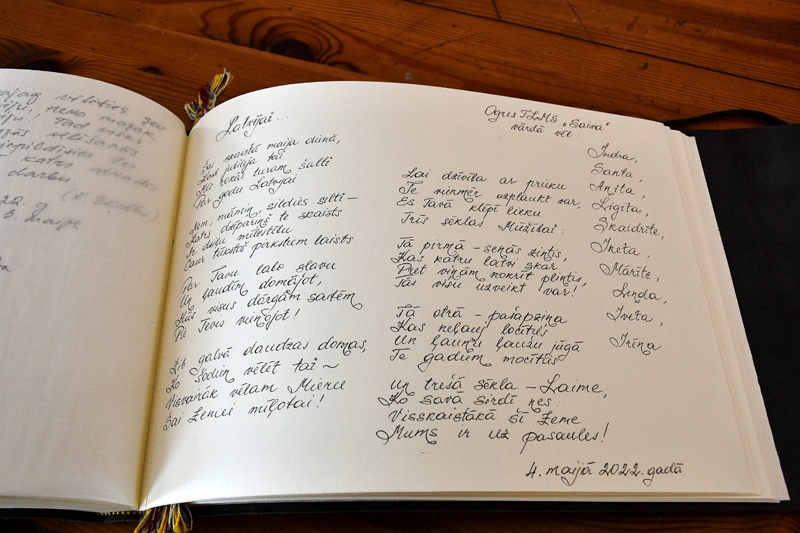 vēlēties jau
nemo mazāk
Tad viens
darbu
Latvijai...
Šai skaistā maija dienā,
Kad jubileja tai
Mēs rokās turam šalti
Par godu Latvijai
Ņem, māmiņ, sildies silti –
Katrs dzīpariņš te skaists
Ir dots mīlestību
Caur tūkstoš pirkstiem laists
Par Tavu labo slavu
Un ļaudīm domājot,
Mūs visus dārgām saitēm
Pie Tevis vienojot!
galvā daudzas domas,
Ko šodien vēlēt tai –
Visvairāk vēlam Mieru
Šai Zemei mīļotai!
Ogres TLMS „Saiva"
vārdā vēl
Lai dzīvīta ar prieku
Te vienmēr uzplaukt var,
Es Tavā klēpī lieku
Trīs sēklas Mūžībai:
Tā pirmā – senās zintis,
Kas katru latvi skar
Pret viņām nokrīt plintis,
Tās visu uzveikt var!
Tā otrā – pašapziņa
Kas neļauj locīties
Un ļaunu ļaužu jūgā
Te gadiem mocīties
Un trešā sēkla – Laime,
Ko savā sirdī nes:
Visskaistākā šī Zeme
Mums ir uz pasaules!
Indra,
Santa,
Anita,
Ligita,
Skaidrīte,
Ineta,
Mārīte,
Linda,
Iveta,
Irīna
4. maijā 2022. gadā